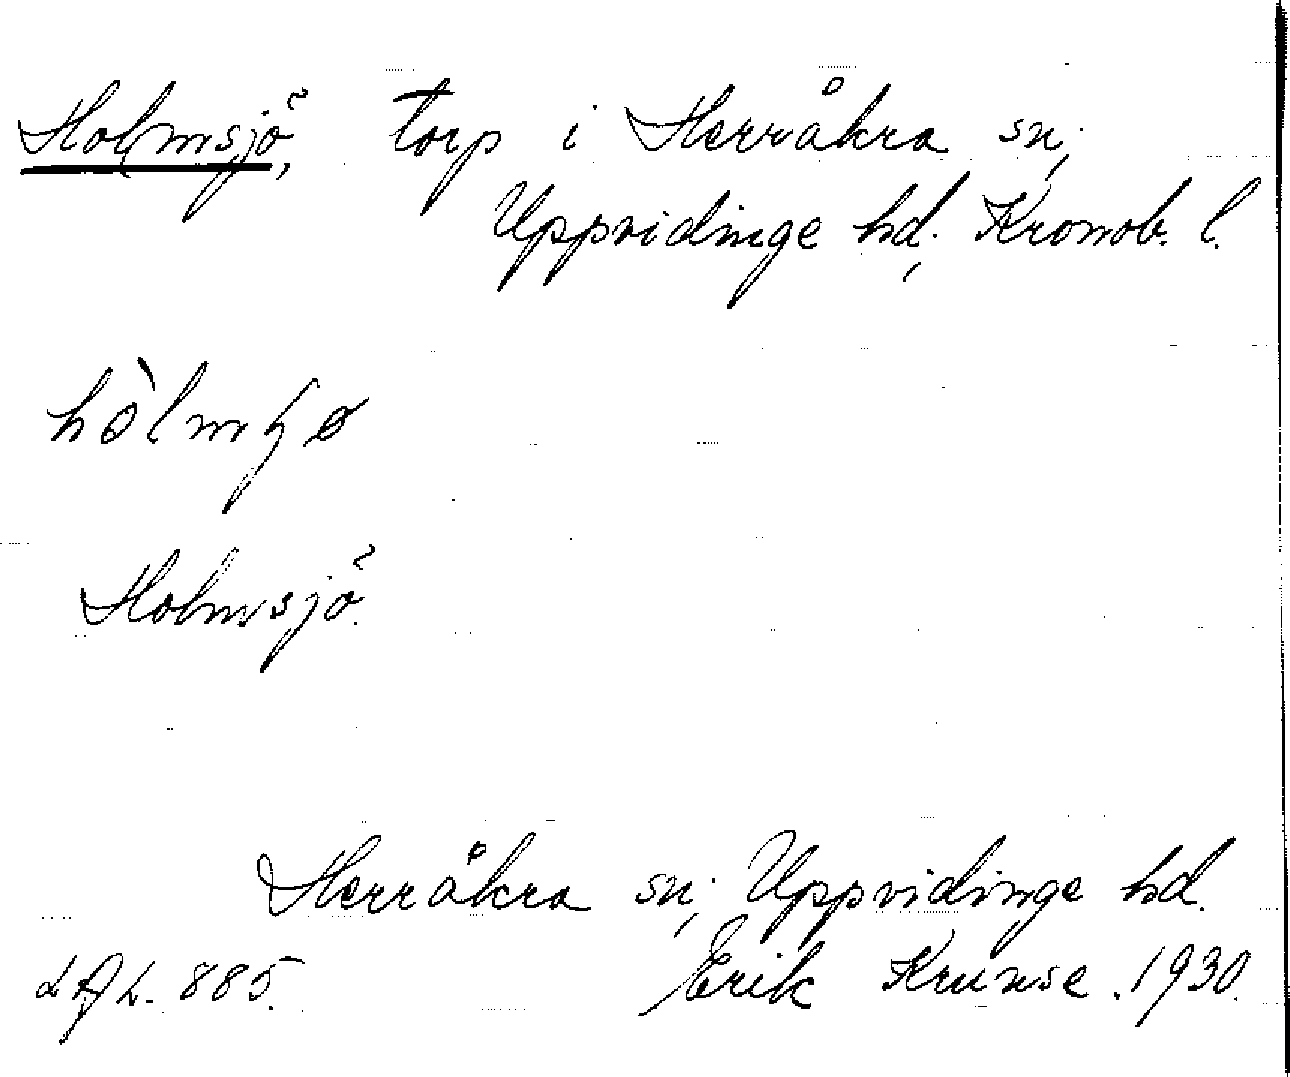 Holmsjö, torp i Herråkra sn.,
Uppvidinge hd., Kronob. l.
hòlmʂø
Holmsjö.
Herråkra sn., Uppvidinge hd.
LAL. 885. Erik Krunse. 1930.